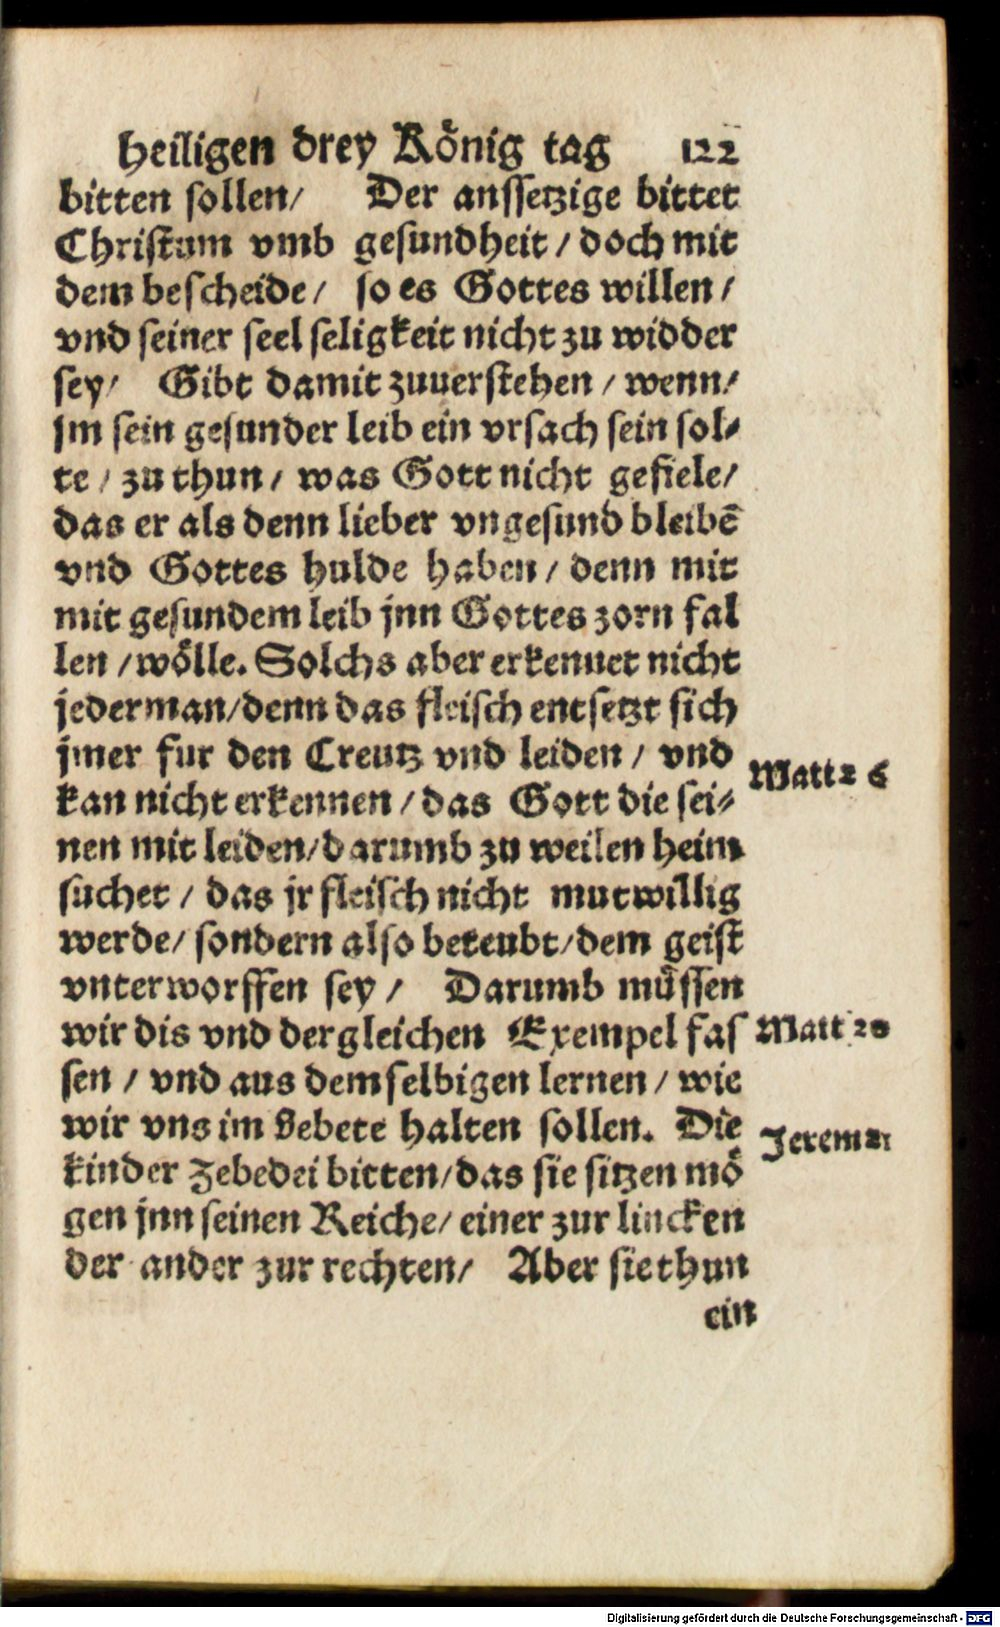 heiligen drey König tag 122
bitten sollen/ Der anssetzige bittet
Christum vmb gesundheit / doch mit
dem bescheide/ so es Gottes willen/
vnd seiner seel seligkeit nicht zu widder
sey/ Gibt damit zuuerstehen / wenn/
jm sein gesunder leib ein vrsach sein sol⸗
te / zu thun / was Gott nicht gefiele/
das er als denn lieber vngesund bleibē
vnd Gottes hulde haben / denn mit
mit gesundem leib jnn Gottes zorn fal
len / wölle. Solchs aber erkennet nicht
jederman/denn das fleisch entsetzt sich
jmer fur den Creutz vnd leiden / vnd
Matt 26
kan nicht erkennen / das Gott die sei⸗
nen mit leiden/darumb zu weilen heim
suchet / das jr fleisch nicht mutwillig
werde/ sondern also beteubt/dem geist
vnterworffen sey / Darumb müssen
wir dis vnd der gleichen Exempel fas
Matt 20
sen / vnd aus dem selbigen lernen / wie
wir vns im Gebete halten sollen. Die
Jerem 21
kinder Zebedei bitten/das sie sitzen mö
gen jnn seinen Reiche/ einer zur lincken
der ander zur rechten/ Aber sie thun
ein
Digitalisierung gefördert durch die Deutsche Forschungsgemeinschaft - DFG